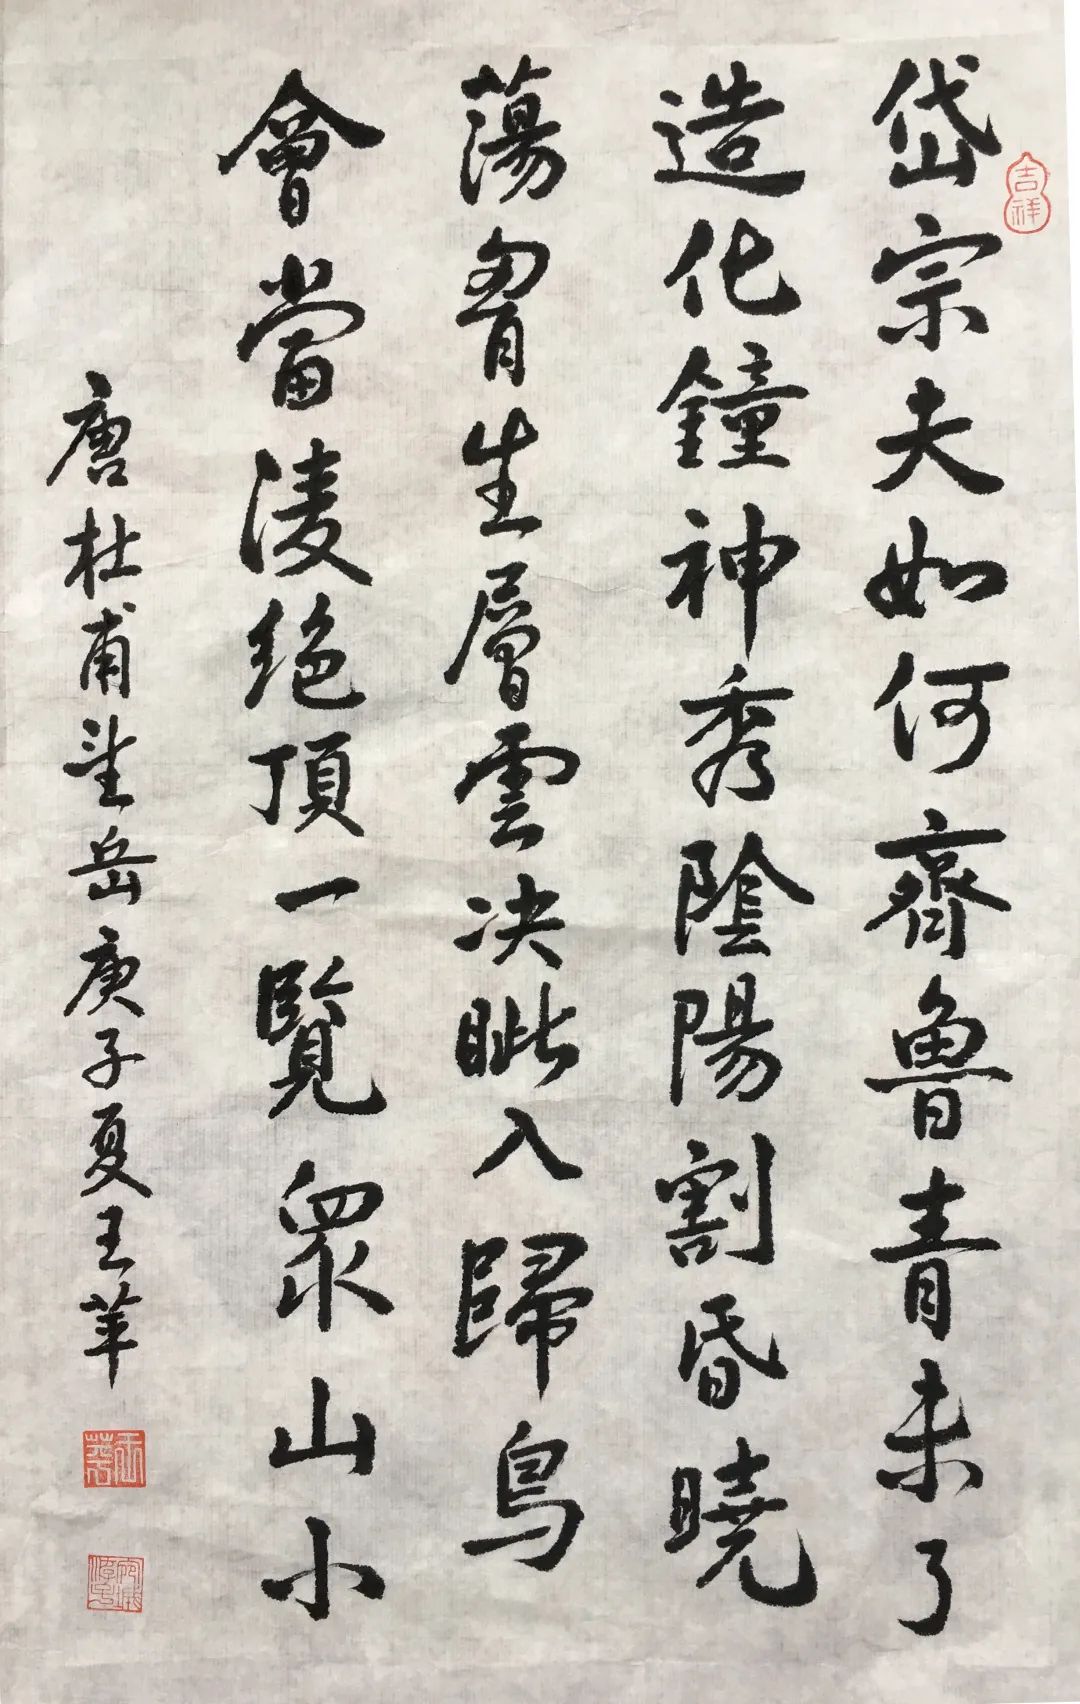 岱宗夫如何齊魯青未了
造化鐘神秀陰陽割昏曉
蕩胷生層雲决眦入歸鳥
會當淩绝頂一覧眾山小
唐杜甫望岳庚子夏王苹
吉祥